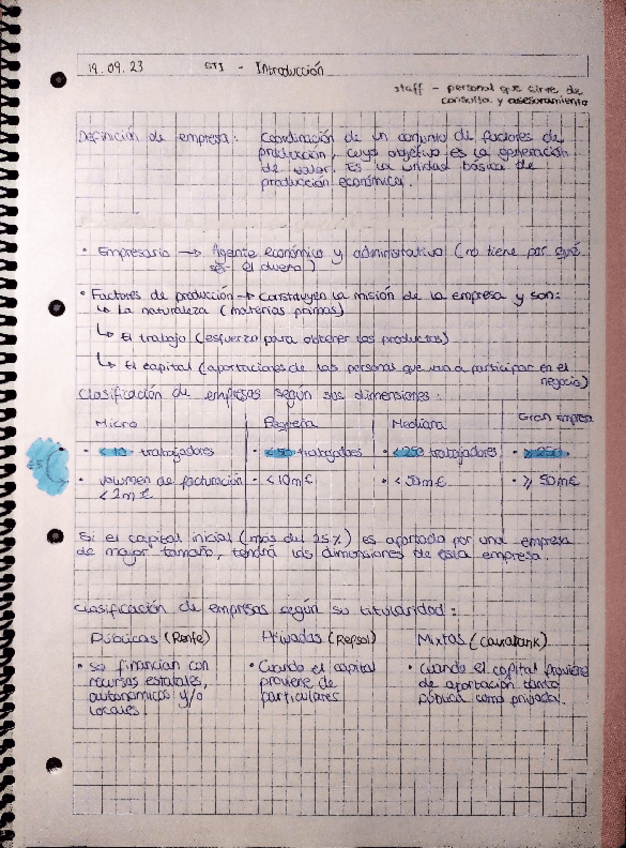 19.09.23 GTI - Introducción
staff - personal que sirve de
consulta y asesoramiento
Definición de empresa: Coordinación de un conjunto de factores de
producción, cuyo objetivo es la generación
de valor. Es la unidad básica de
producción económica.
• Empresario → Agente económico y administrativo (no tiene por qué
ser el dueño)
• Factores de producción → Constituyen la misión de la empresa y son:
↳ La naturaleza (materias primas)
↳ El trabajo (esfuerzo para obtener los productos)
↳ El capital (aportaciones de las personas que van a participar en el
negocio)
Clasificación de empresas según sus dimensiones:
Micro Pequeña Mediana Gran empresa
• < 10 trabajadores • < 50 trabajadores • < 250 trabajadores • ≥ 250
• volumen de facturación • < 10m€ • < 50m€ • ≥ 50m€
< 2m€
Si el capital inicial (más del 25%) es aportado por una empresa
de mayor tamaño, tendrá las dimensiones de esta empresa.
Clasificación de empresas según su titularidad:
Públicas (Renfe) Privadas (Repsol) Mixtas (CaixaBank)
• Se financian con • Cuando el capital • Cuando el capital proviene
recursos estatales, proviene de de aportación tanto
autonómicos y/o particulares pública como privada.
locales.